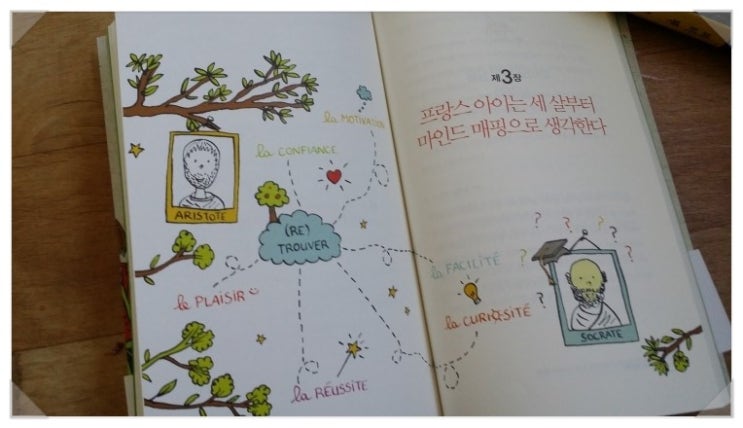 la MOTIVATION
la CONFIANCE
ARISTOTE
(RE)
TROUVER
le PLAISIR
la RÉUSSITE
제3장
프랑스 아이는 세 살부터
마인드 매핑으로 생각한다
la FACILITÉ
la CURIOSITÉ
? ? ? ? ? ?
SOCRATE